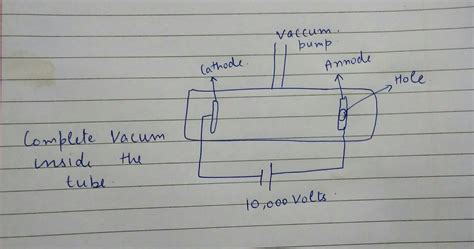 Vaccum
pump
Cathode.
Annode
Hole
Complete Vacum
inside the
tube.
10,000 Volts.